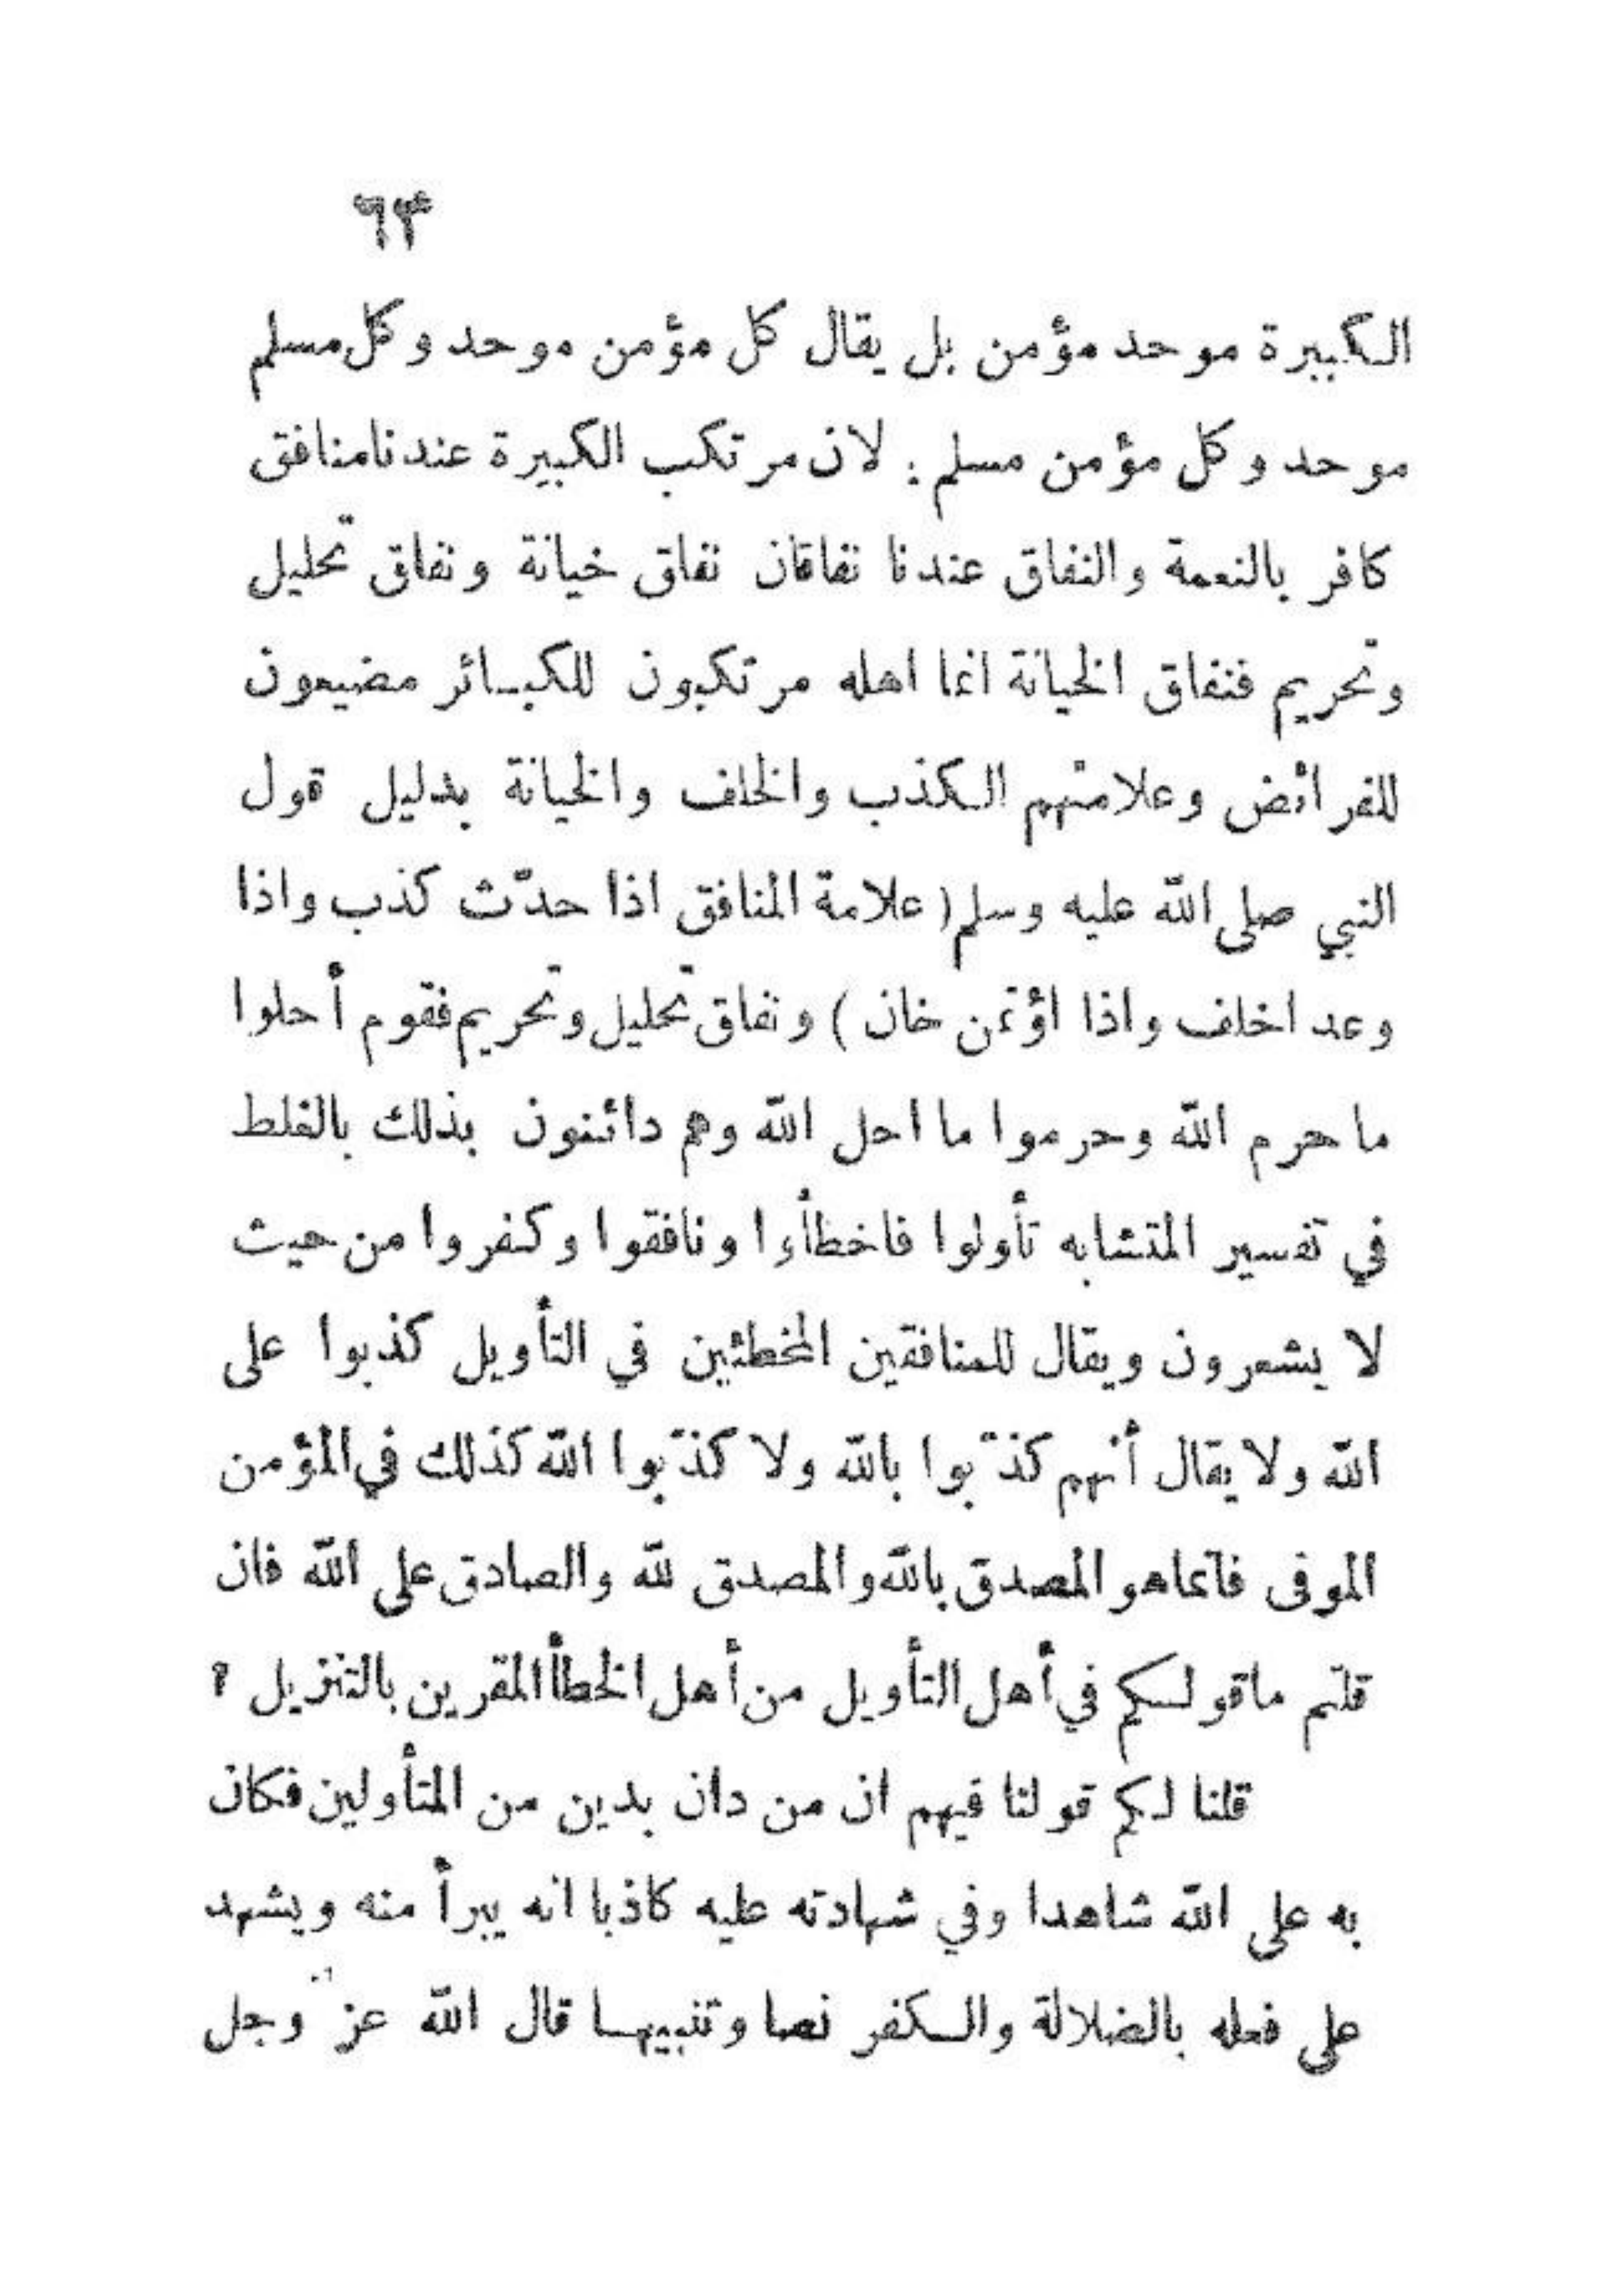 ٦٣
الكبيرة موحد مؤمن بل يقال كل مؤمن موحد وكل مسلم
موحد وكل مؤمن مسلم : لان مرتكب الكبيرة عندنا منافق
كافر بالنعمة والنفاق عندنا نفاقان نفاق خيانة ونفاق تحليل
وتحريم فنفاق الخيانة انما اهله مرتكبون للكبائر مضيعون
للفرائض وعلامتهم الكذب والخلف والخيانة بدليل قول
النبي صلى الله عليه وسلم ( علامة المنافق اذا حدّث كذب واذا
وعد اخلف واذا اؤتمن خان ) ونفاق تحليل وتحريم فقوم أحلوا
ما حرم الله وحرموا ما احل الله وهم دائنون بذلك بالغلط
في تفسير المتشابه تأولوا فاخطأءوا ونافقوا وكفروا من حيث
لا يشعرون ويقال للمنافقين المخطئين في التأويل كذبوا على
الله ولا يقال أنهم كذّبوا بالله ولا كذّبوا الله كذلك في المؤمن
الموفى فانما هو المصدق بالله والمصدق لله والصادق على الله فان
قلتم ما قولكم في أهل التأويل من أهل الخطأ المقرين بالتنزيل ؟
قلنا لكم قولنا فيهم ان من دان بدين من المتأولين فكان
به على الله شاهدا وفي شهادته عليه كاذبا انه يبرأ منه ويشهد
على فعله بالضلالة والكفر نصا وتنبيها قال الله عز وجل